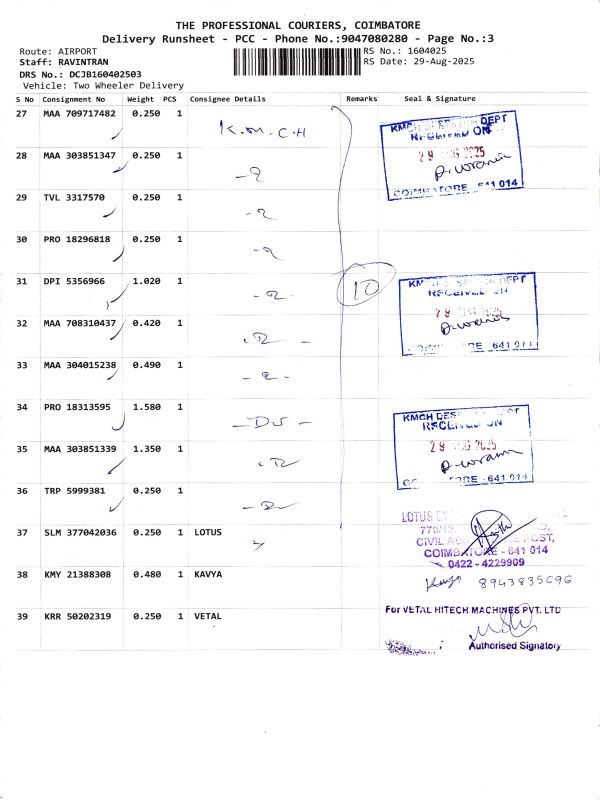 THE PROFESSIONAL COURIERS, COIMBATORE
Delivery Runsheet - PCC - Phone No.:9047080280 - Page No.:3
Route: AIRPORT RS No.: 1604025
Staff: RAVINTRAN RS Date: 29-Aug-2025
DRS No.: DCJB160402503
Vehicle: Two Wheeler Delivery
S No Consignment No Weight PCS Consignee Details Remarks Seal & Signature
27 MAA 709717482 0.250 1 K.M.C.H
KMCH DEPT
RECEIVED ON
29 AUG 2025
COIMBATORE - 641 014
28 MAA 303851347 0.250 1
29 TVL 3317570 0.250 1
30 PRO 18296818 0.250 1
31 DPI 5356966 1.020 1 10
DEPT
RECEIVED ON
29 2025
641 011
32 MAA 708310437 0.420 1
33 MAA 304015238 0.490 1
34 PRO 18313595 1.580 1
KMCH DEPT
RECEIVED ON
29 AUG 2025
641 014
35 MAA 303851339 1.350 1
36 TRP 5999381 0.250 1
37 SLM 377042036 0.250 1 LOTUS
LOTUS
CIVIL POST,
COIMBATORE - 641 014
0422 - 4229909
38 KMY 21388308 0.480 1 KAVYA 8943835696
39 KRR 50202319 0.250 1 VETAL
For VETAL HITECH MACHINES PVT. LTD
Authorised Signatory